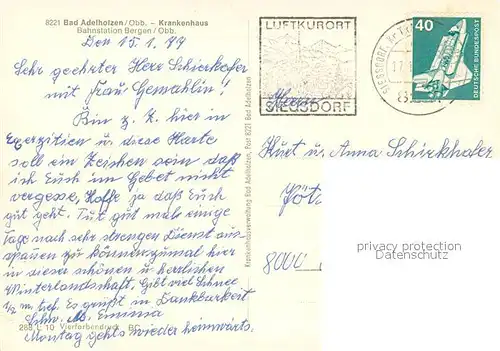 8221 Bad Adelholzen/Obb. – Krankenhaus
Bahnstation Bergen / Obb.
Den 15. 1. 79
Sehr geehrter Herr Schierkofer
mit Frau Gemahlin!
Bin z. Z. hier in
Exerzitien u. diese Karte
soll ein Zeichen sein daß
ich Euch im Gebet nicht
vergesse, Hoffe ja daß Euch
gut geht. Tut gut mal einige
Tage nach sehr strengen Dienst aus-
spannen zu können, zumal hier
in dieser schönen u herrlichen
Winterlandschaft. Gibt viel Schnee
1/2 m. tief. Es grüßt in Dankbarkeit
Schw. M. Emma
Montag gehts wieder heimwärts.
288 L 10 Vierfarbendruck BC
Krankenhausverwaltung Bad Adelholzen, Post 8221 Bad Adelholzen
LUFTKURORT
SIEGSDORF
SIEGSDORF
40
DEUTSCHE BUNDESPOST
Kurt u. Anna Schierkhofer
8000
privacy protection
Datenschutz